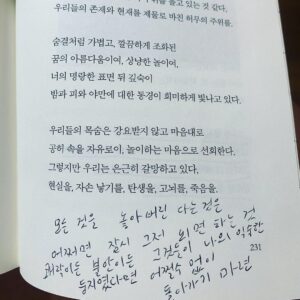 우리들의 존재와 현재를 제물로 바친 허무의 주위를.
숨결처럼 가볍고, 깔끔하게 조화된
꿈의 아름다움이여, 상냥한 놀이여,
너의 명랑한 표면 뒤 깊숙이
밤과 피와 야만에 대한 동경이 희미하게 빛나고 있다.
우리들의 목숨은 강요받지 않고 마음대로
공허 속을 자유로이, 놀이하는 마음으로 선회한다.
그렇지만 우리는 은근히 갈망하고 있다.
현실을, 자손 낳기를, 탄생을, 고뇌를, 죽음을.
231
모든 것을 놓아 버린 다는것은
어쩌면 잠시 그저 쉬면 하는 것
불안이든 그것들이 나의 익숙한
둥지였다면 어쩔수 없이
돌아가기 마련